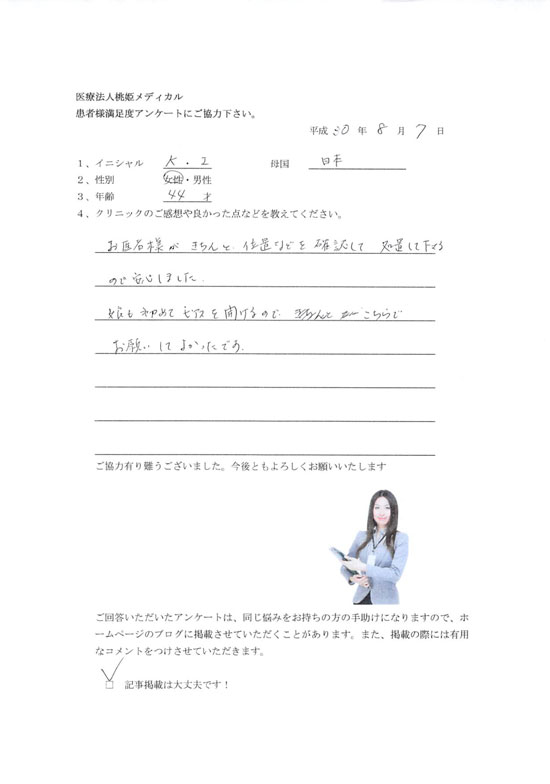 医療法人桃姫メディカル
患者様満足度アンケートにご協力下さい。
平成 30 年 8 月 7 日
1、イニシャル K・I 母国 日本
2、性別 女性・男性
3、年齢 44 才
4、クリニックのご感想や良かった点などを教えてください。
お医者様が きちんと 位置などを 確認して 処置して下さる
ので安心しました。
娘も 初めて ピアスを 開けるので こちらで
お願いして よかったです。
ご協力有り難うございました。今後ともよろしくお願いいたします
ご回答いただいたアンケートは、同じ悩みをお持ちの方の手助けになりますので、ホ
ームページのブログに掲載させていただくことがあります。また、掲載の際には有用
なコメントをつけさせていただきます。
□ 記事掲載は大丈夫です！